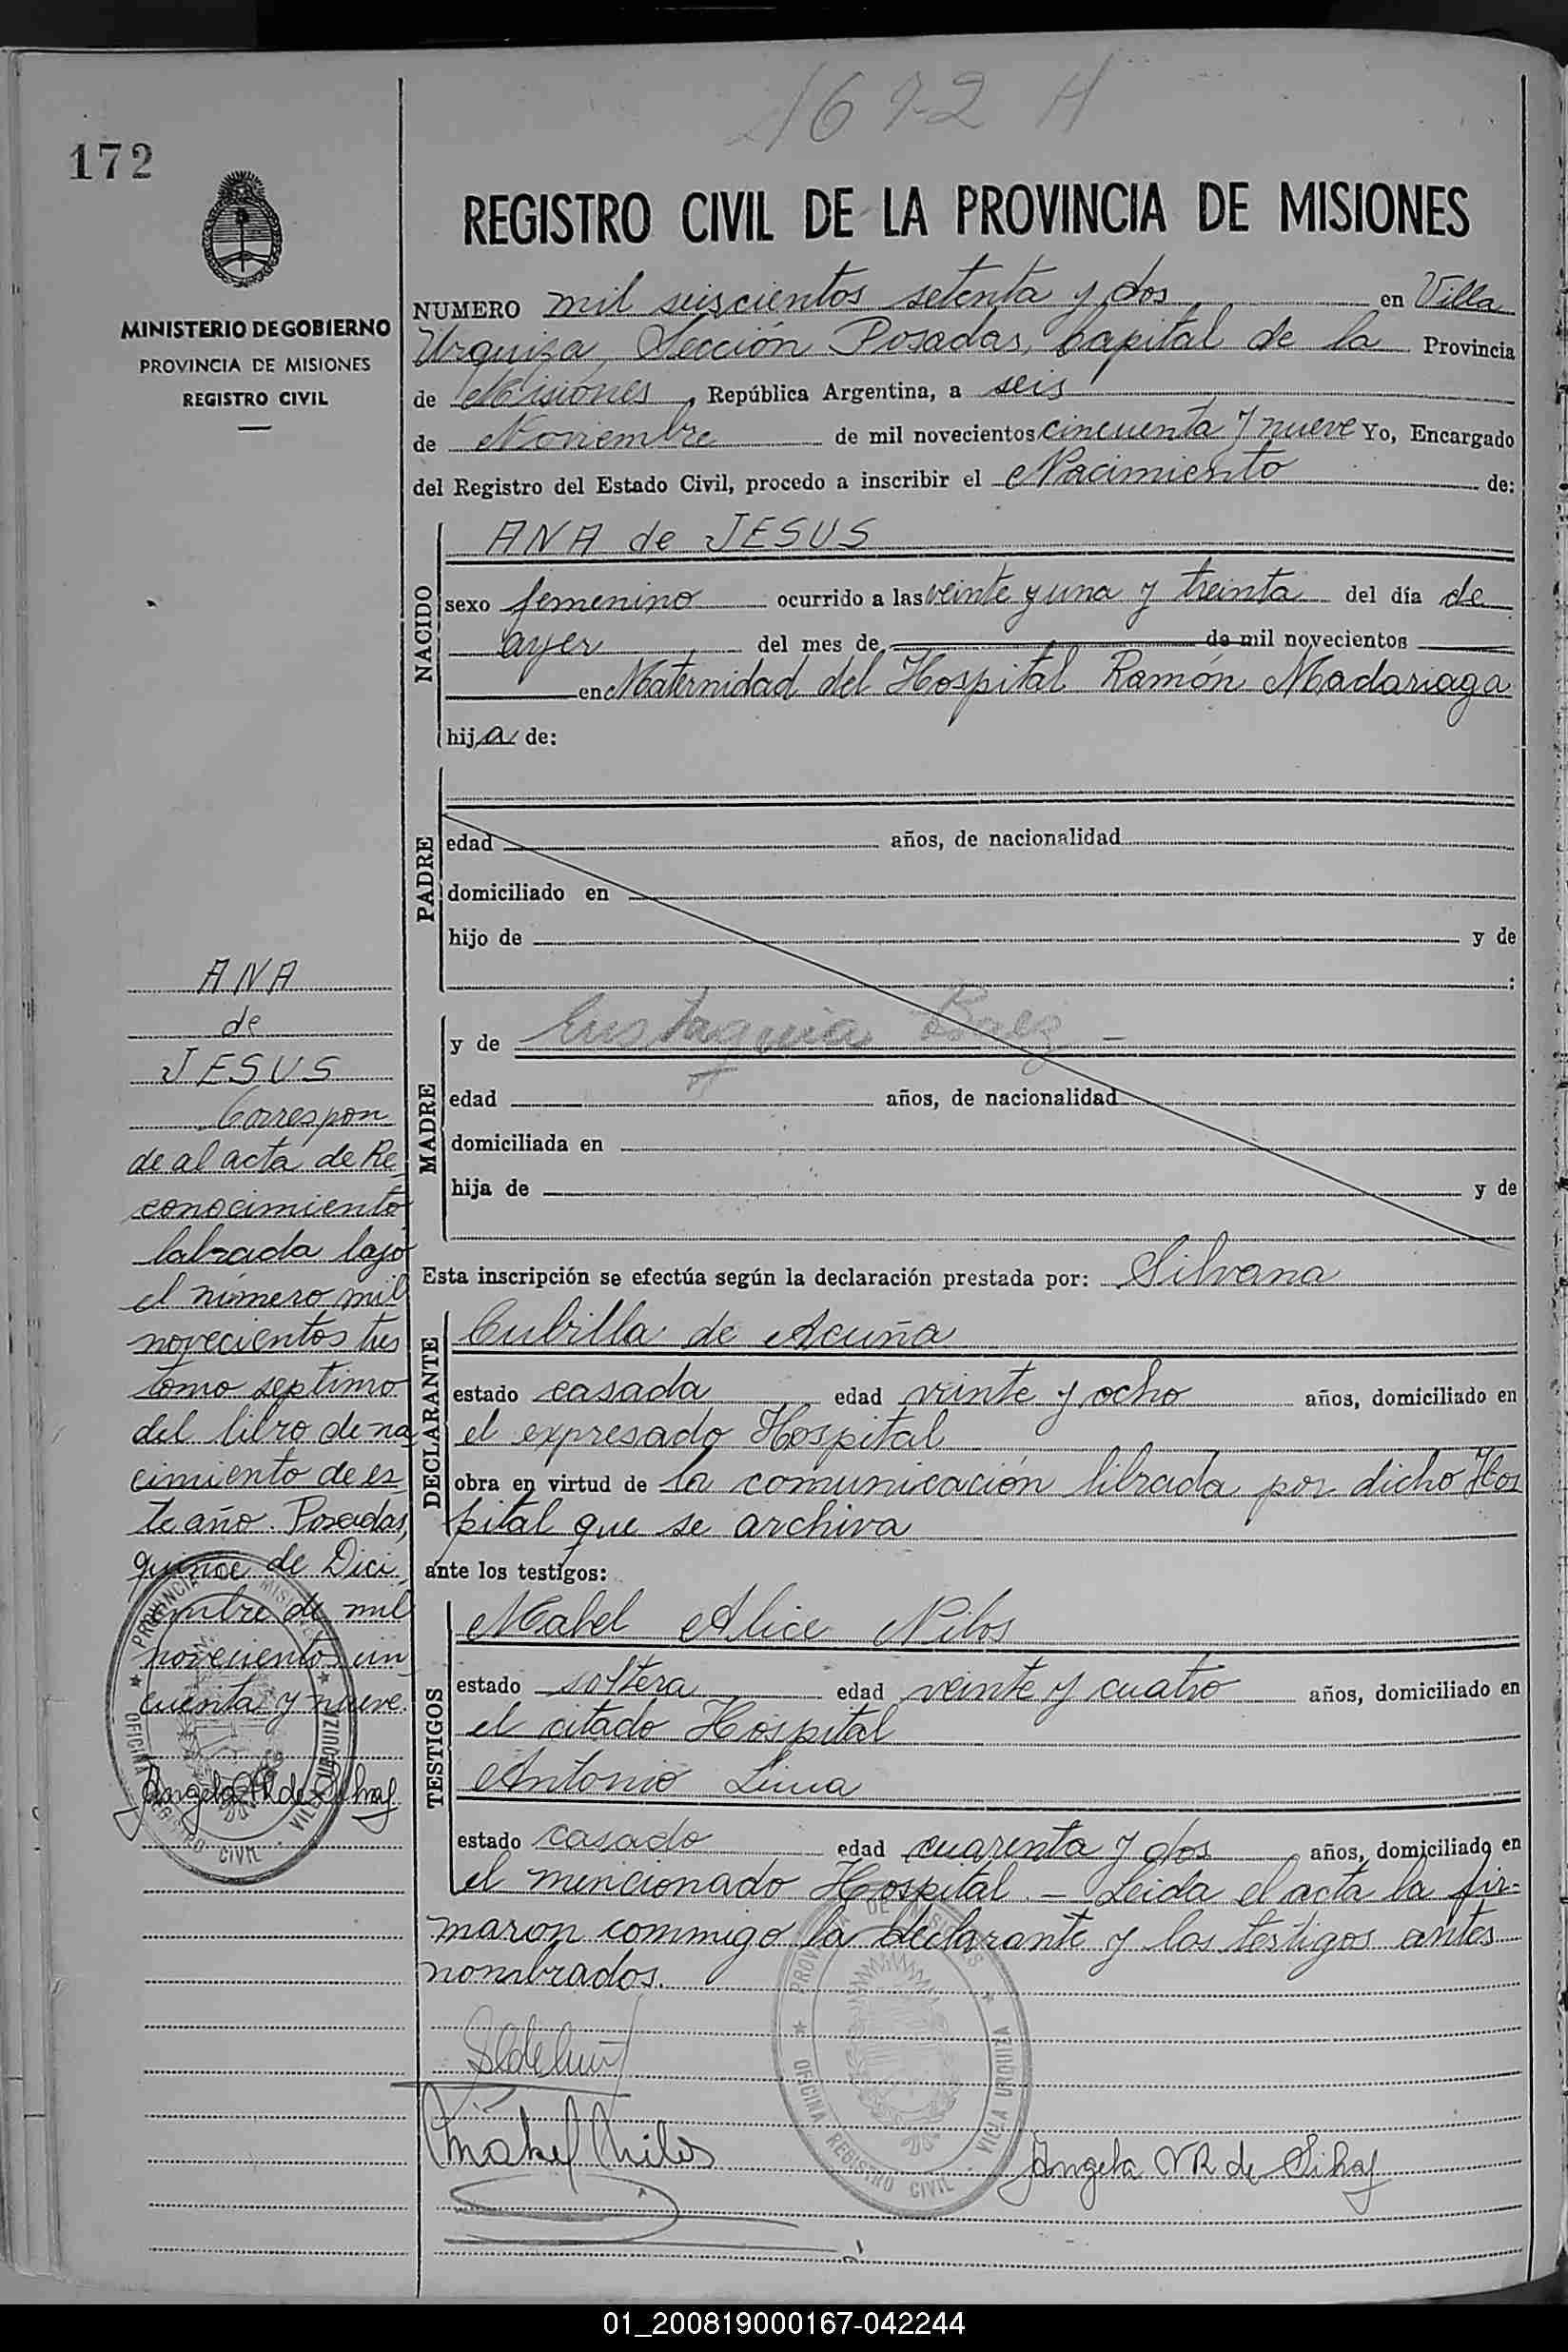 1672 A
172
REGISTRO CIVIL DE LA PROVINCIA DE MISIONES
MINISTERIO DE GOBIERNO
PROVINCIA DE MISIONES
REGISTRO CIVIL
NUMERO mil seiscientos setenta y dos en Villa
Urquiza, Sección Posadas, Capital de la Provincia
de Misiones, República Argentina, a seis
de Noviembre de mil novecientos cincuenta y nueve Yo, Encargado
del Registro del Estado Civil, procedo a inscribir el Nacimiento de:
NACIDO
ANA de JESUS
sexo femenino ocurrido a las veinte y una y treinta del día de
ayer del mes de de mil novecientos
en Maternidad del Hospital Ramón Madariaga
hija de:
PADRE
edad años, de nacionalidad
domiciliado en
hijo de y de
:
MADRE
y de Eustaquia Baez -
edad años, de nacionalidad
domiciliada en
hija de y de
Esta inscripción se efectúa según la declaración prestada por: Silvana
DECLARANTE
Cubilla de Acuña
estado casada edad veinte y ocho años, domiciliado en
el expresado Hospital
obra en virtud de la comunicación librada por dicho Hos
pital que se archiva
ante los testigos:
TESTIGOS
Mabel Alice Nilos
estado soltera edad veinte y cuatro años, domiciliado en
el citado Hospital
Antonio Lima
estado casado edad cuarenta y dos años, domiciliado en
el mencionado Hospital. - Leida el acta la fir-
maron conmigo la declarante y los testigos antes
nombrados.
Mabel Nilos
Angela VR de Sihaf
PROVINCIA DE MISIONES
OFICINA REGISTRO CIVIL - VILLA URQUIZA
ANA
de
JESUS
Correspon
de al acta de Re
conocimiento
labrada bajo
el número mil
novecientos tres
tomo septimo
del libro de na
cimiento de es
te año. Posadas,
quince de Dici
embre de mil
novecientos cin
cuenta y nueve.
PROVINCIA DE MISIONES
OFICINA REGISTRO CIVIL - VILLA URQUIZA
01_200819000167-042244